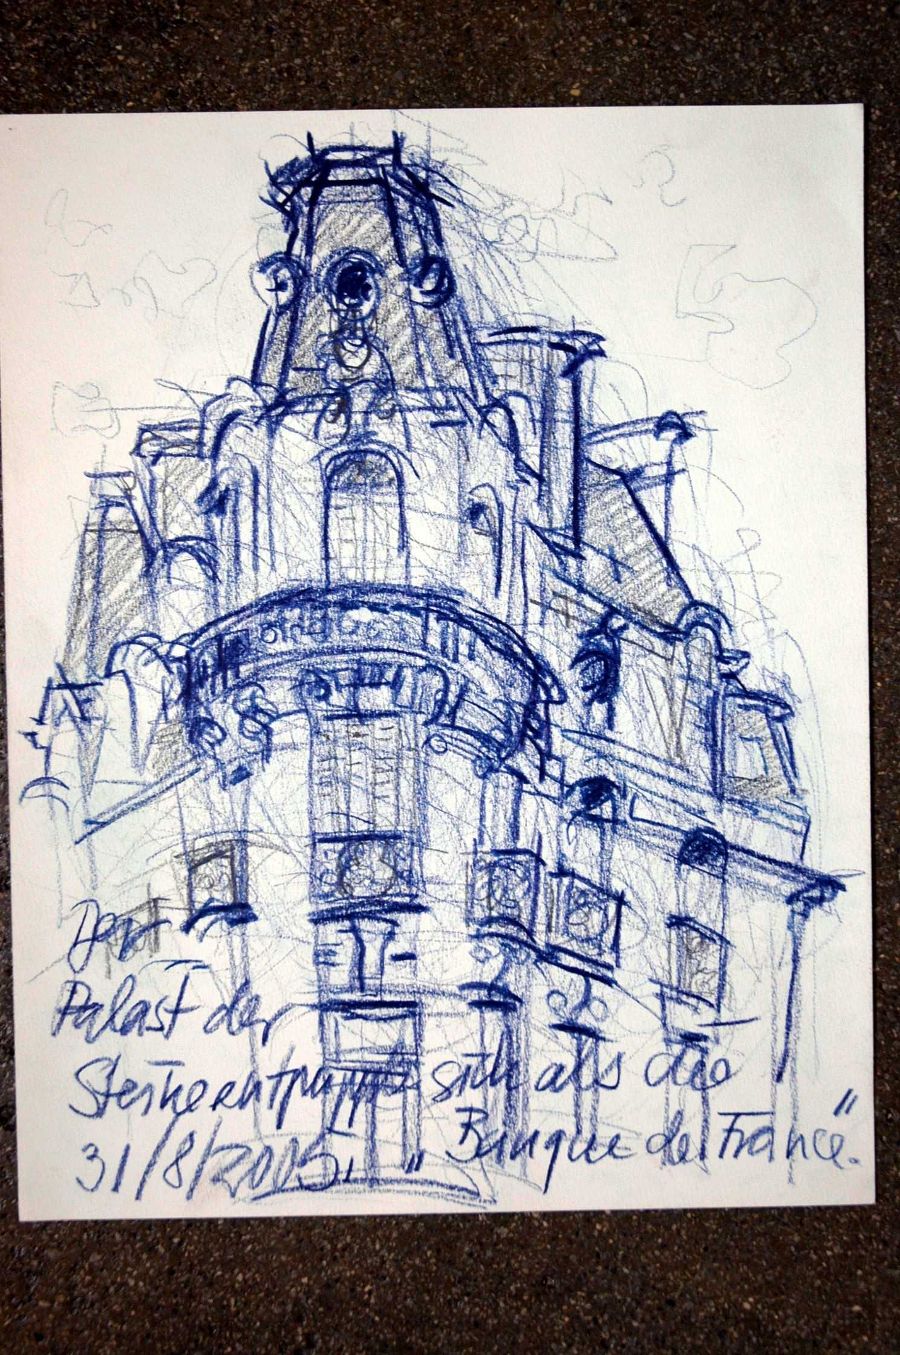 Der
Palast der
Steine entpuppte sich als die
31/8/2005. „Banque de France."